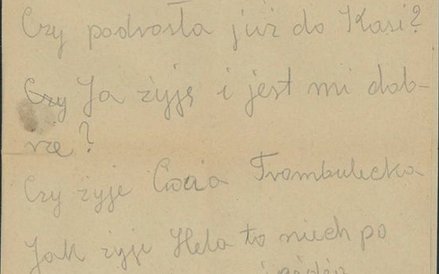 Czy podrosła już do Kasi?
Czy Ja żyję i jest mi dob-
rze?
Czy żyje Ciocia Trombulecka
Jak żyje Hela to niech po